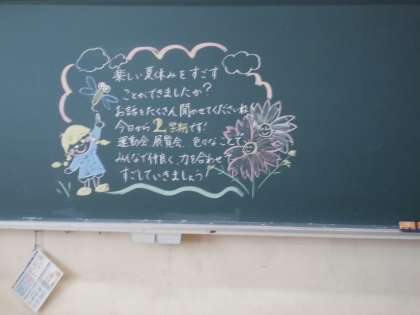 楽しい夏休みをすごす
ことができましたか？
お話をたくさん聞かせてくださいね！
今日から2学期です！
運動会、展覧会、色々なことで
みんなで仲良く、力を合わせて
すごしていきましょう！